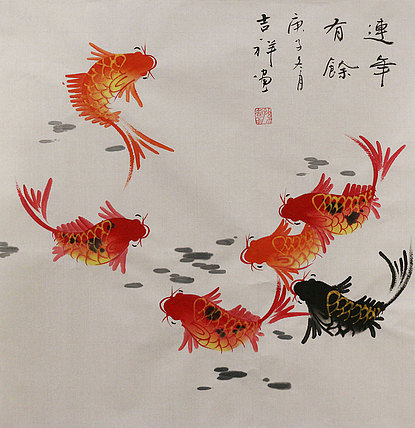 連年
有餘
庚子冬月
吉祥畫